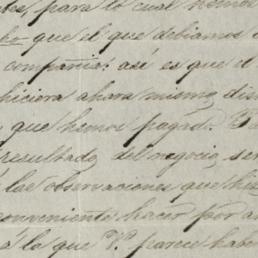 para lo cual hemos
que el que debiamos
compañia: así es que el
hiciera ahora mismo, dis
que hemos pagado.
resultado del negocio, ser
á las observaciones que hic
conveniente hacer por a
á la que V. parece haber